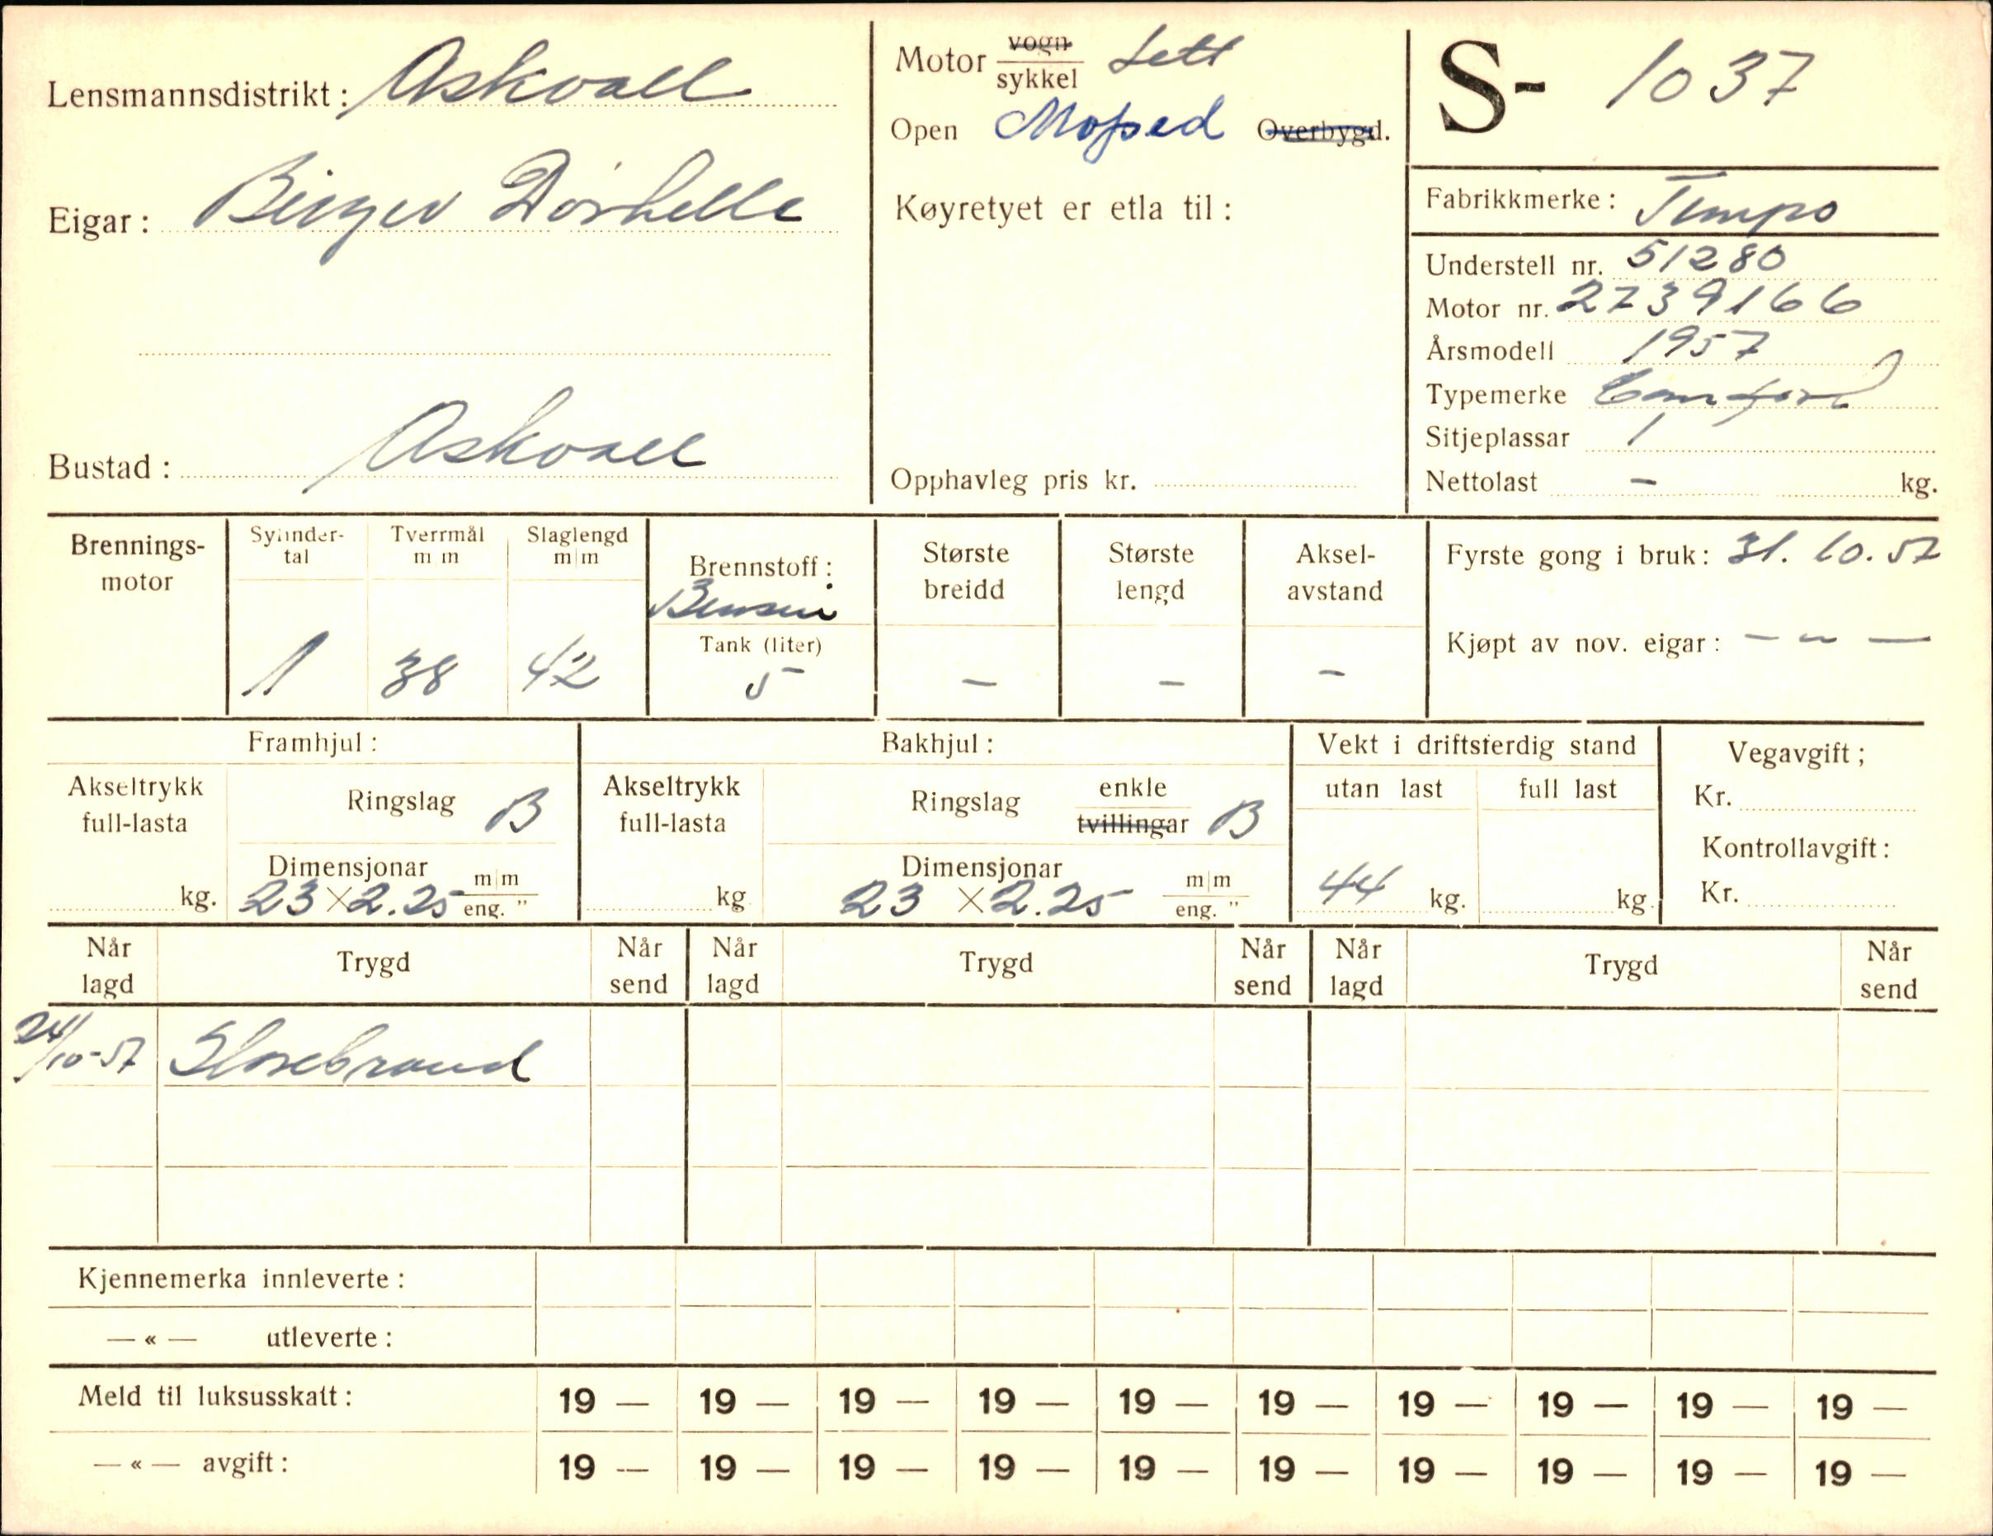 Lensmannsdistrikt: Askvoll
Eigar: Birger Dørhelle
Bustad: Askvoll
Motor vogn/sykkel Lett
Open Moped Overbygd.
Køyretyet er etla til:
Opphavleg pris kr.
S- 1037
Fabrikkmerke: Tempo
Understell nr. 51280
Motor nr. 2739166
Årsmodell 1957
Typemerke Comfort
Sitjeplassar 1
Nettolast - kg.
Brennings-motor
Sylinder-tal 1
Tverrmål m|m 38
Slaglengd m|m 42
Brennstoff: Bensin
Tank (liter) 5
Største breidd -
Største lengd -
Aksel-avstand -
Fyrste gong i bruk: 31.10.57
Kjøpt av nov. eigar: — „ —
Framhjul:
Akseltrykk full-lasta kg.
Ringslag B
Dimensjonar 23 × 2.25 m|m eng. "
Bakhjul:
Akseltrykk full-lasta kg
Ringslag enkle tvillingar B
Dimensjonar 23 × 2.25 m|m eng. "
Vekt i driftsferdig stand
utan last 44 kg.
full last kg
Vegavgift;
Kr.
Kontrollavgift:
Kr.
Når lagd Trygd Når send Når lagd Trygd Når send Når lagd Trygd Når send
24/10-57 Storebrand
Kjennemerka innleverte:
— « — utleverte:
Meld til luksusskatt: 19 — 19 — 19 — 19 — 19 — 19 — 19 — 19 — 19 — 19 —
— « — avgift: 19 — 19 — 19 — 19 — 19 — 19 — 19 — 19 — 19 — 19 —